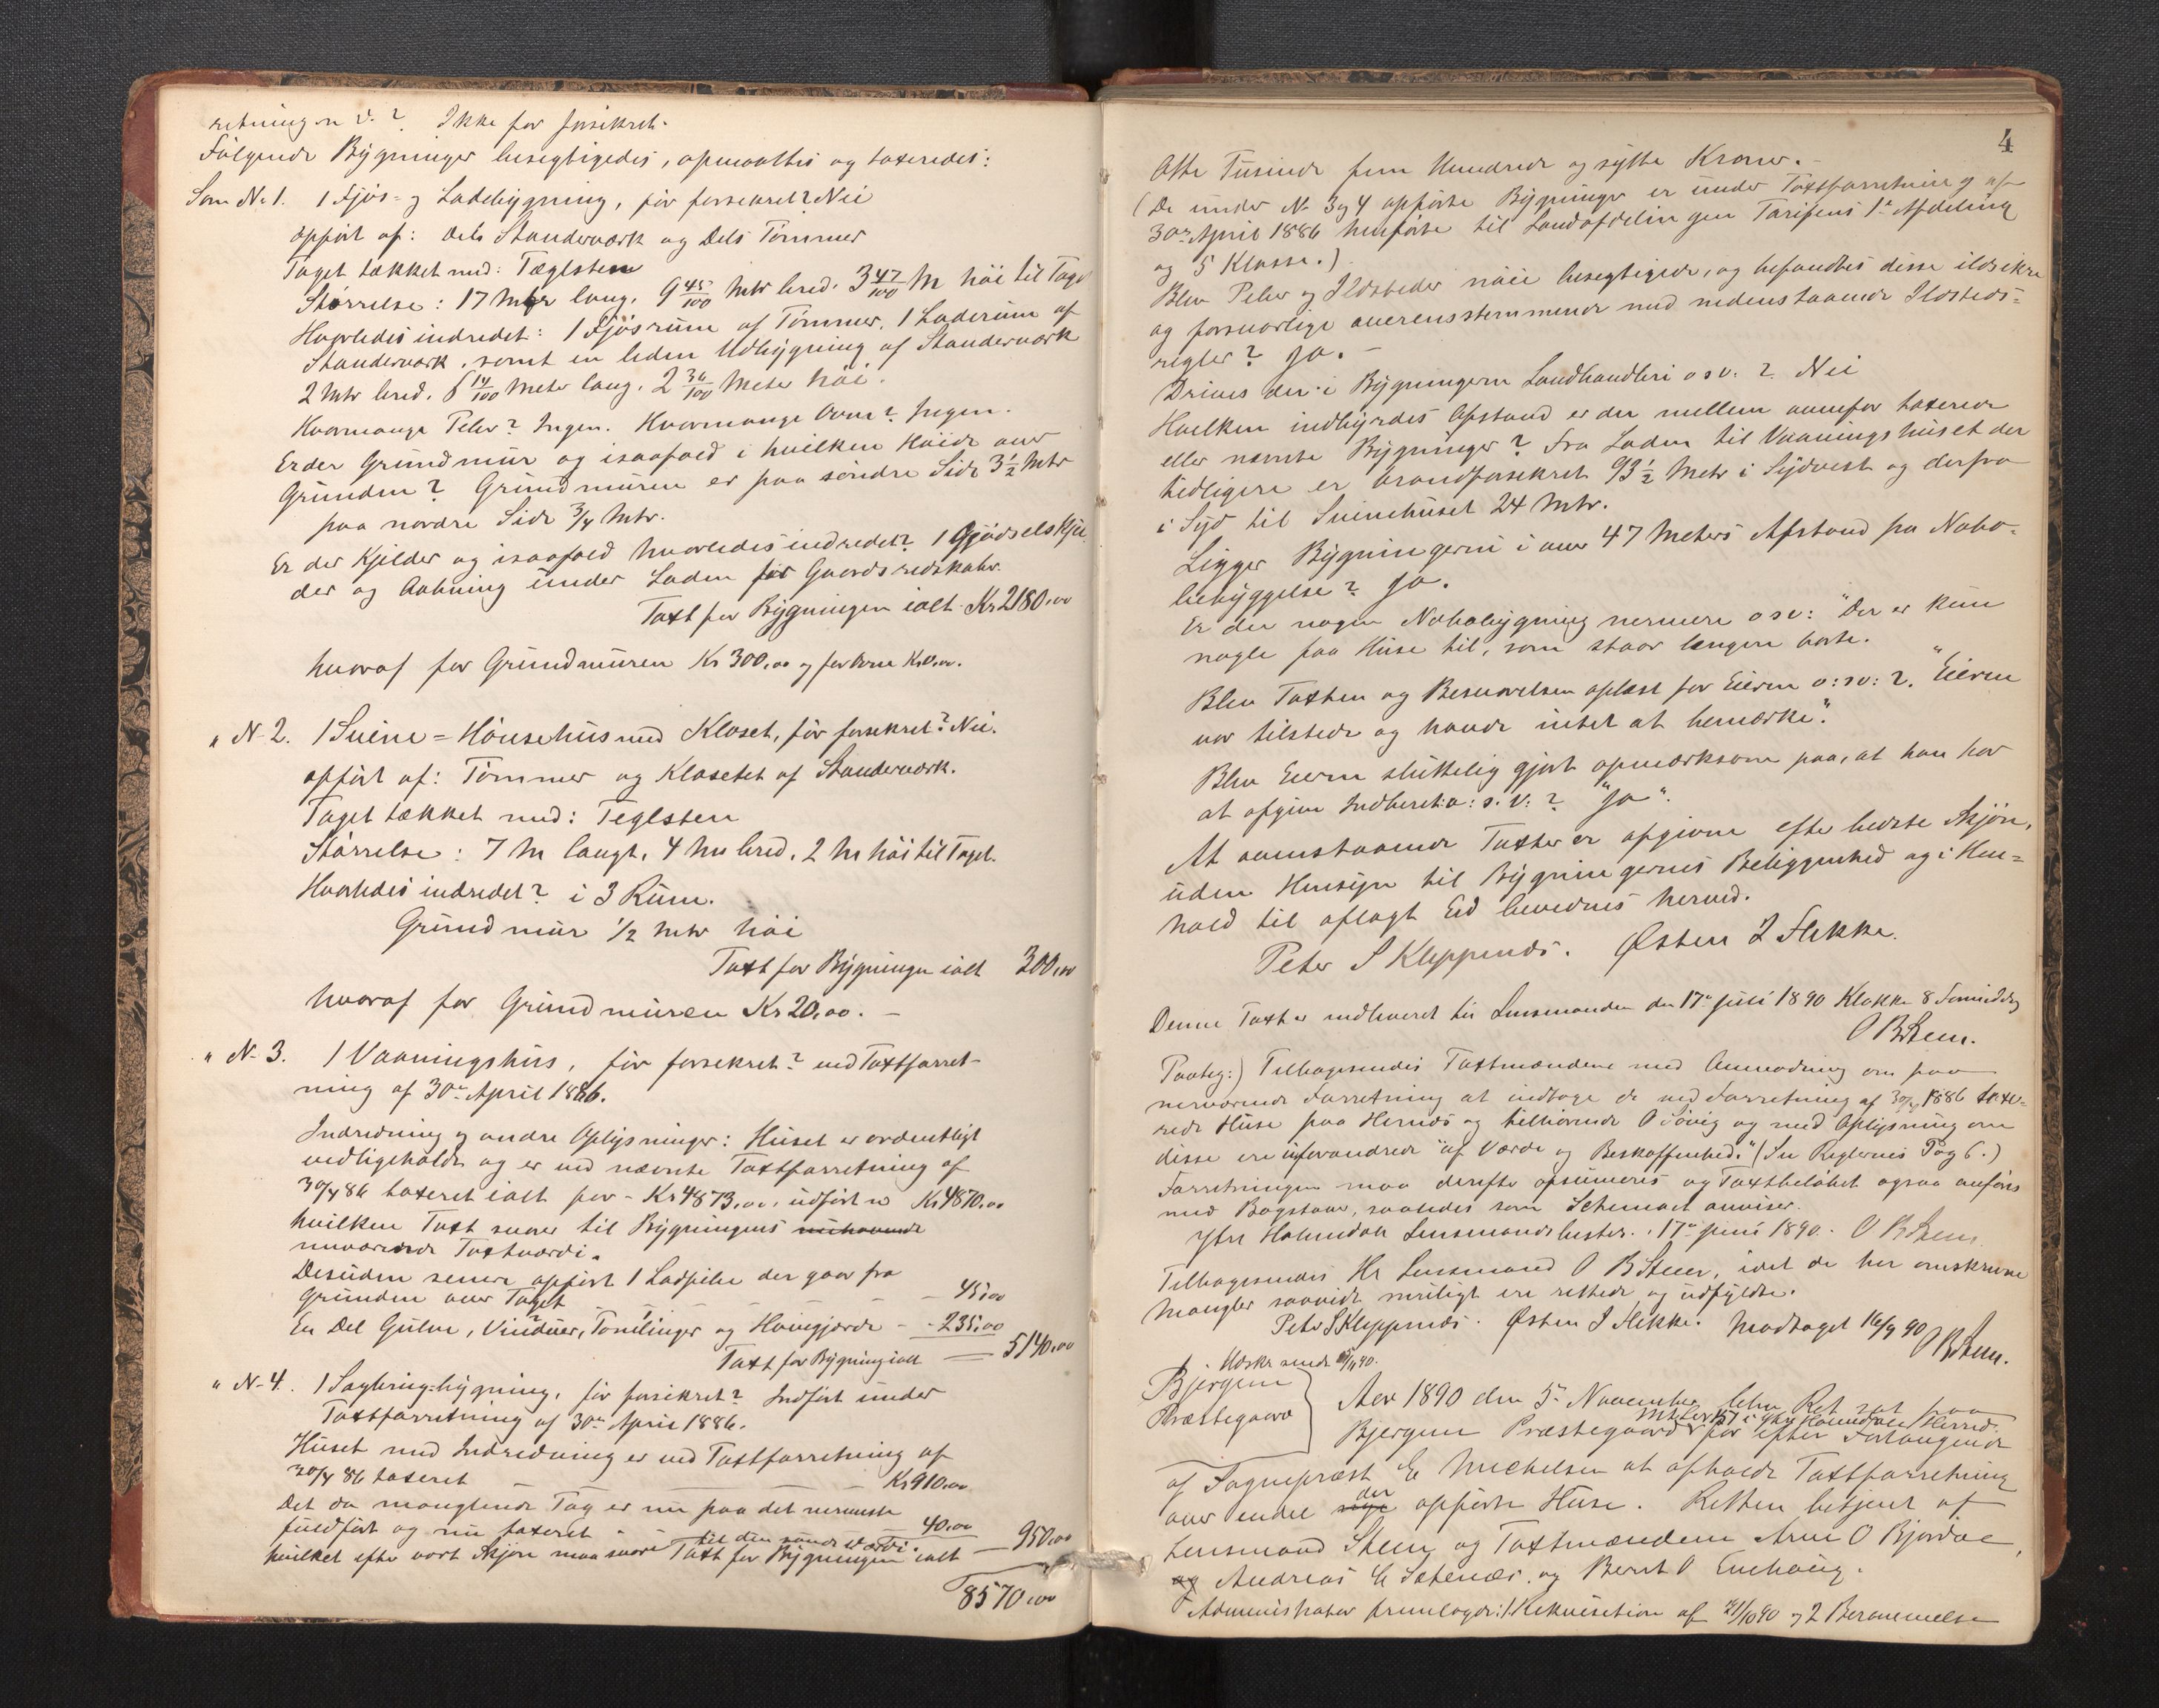 retningen v.? Ikke før forsikret.
Følgende Bygninger besegtigedes, opmaaltes og taxeredes:
Som No 1. 1 Fjøs- og Ladebygning, før forsekret? Nei
opført af: dels Standerværk og Dels Tømmer
Taget tækket med: Tæglsten
Størrelse: 17 Mtr lang. 9 45/100 Mtr bred. 3 47/100 M høi til Taget
Hvorledes indredet: 1 Fjøsrum af Tømmer. 1 Laderum af
Standerværk, samt en liden Udbygning af Standerværk
2 Mtr bred. 6 14/100 Meter lang. 2 36/100 Meter høi.
Hvormange Peber? Ingen. Hvormange Ovne? Ingen.
Er der Grundmur og isaafald i hvilken Høide over
Grunden? Grundmuren er paa søndre Side 3½ Mtr
paa nordre Side ¾ Mtr.
Er der Kjelder og isaafald hvorledes indredet? 1 Gjødselskjel
der og Aabning under Laden for Gaardsredskaber.
Taxt for Bygningen ialt Kr 2180,00
hvoraf for Grundmuren Kr 300,00 og for Ovne Kr 0,00.
" No 2. 1 Svine= Hønsehus med Kloset, før forsekret? Nei.
opført af: Tømmer og Klosetet af Standerværk.
Taget tækket med: Teglsten
Størrelse: 7 M langt, 4 M bred, 2 M høi til Taget.
Hvorledes indredet? i 3 Rum.
Grundmur ½ Mtr høi
Taxt for Bygningen ialt 300,00
hvoraf for Grundmuren Kr 20,00. –
" No 3. 1 Vaaningshus, før forsekret? ved Taxtforret-
ning af 30te April 1886.
Indredning og andre Oplysninger: Huset er ordentligt
vedligeholdt og er ved nævnte Taxtforretning af
30/4 86 taxeret ialt for – Kr 4873,00, udført m Kr 4870,00
hvilken Taxt svarer til Bygningens
nuværende Taxtværdi.
Desuden senere opført 1 Ladpibe der gaar fra
Grunden over Taget – – – – – 45,00
En Del Gulve, Vinduer, og Havegjærde – – 235,00
Taxt for Bygning ialt — 5140,00
" No 4. 1 bygning, før forsikret? Indført under
Taxtforretning af 30te April 1886.
Huset med Indredning er ved Taxtforretning af
30/4 86 taxeret — — — Kr 910,00
Det da manglende Tag er nu paa det nærmeste
fuldført og nu taxeret – – 40,00
hvilket efter vort Skjøn maa svare til den sande Værdi.
Taxt for Bygningen ialt — 950,00
8570,00
4
Otte Tusinde fem Hundrede og sytti Kroner. –
(De under No 3 og 4 opførte Bygninger er under Taxtforretning af
30te April 1886 henførte til Landafdelingen Tarifens 1te Afdeling
og 5 Klasse.)
Blev Peber og Ildsteder nøie besegtigede, og befandtes disse ildsikre
og forsvarlige overensstemmende med nedenstaaende Ildsteds=
regler? Ja. –
Drives der i Bygningerne Landhandleri o s v. ? Nei
Hvilken indbyrdes Afstand er der mellem ovenfor taxerede
eller nævnte Bygninger? Fra Laden til Vaaningshuset der
tidligere er brandforsekret 93½ Metr i Sydvest og derfra
i Syd til Svinehuset 24 Mtr.
Ligger Bygningerne i over 47 Meters Afstand fra Nabo-
bebyggelse? Ja.
Er der nogen Nabobygning nermere o s v: "Der er kun
nogle faa Huse til, som staar lengere borte."
Blev Taxten og Beskrivelsen oplæst for Eieren o: s v: ? "Eieren
var tilstede og havde intet at bemærke".
Blev Eieren sluttelig gjort opmærksom paa, at han har
at afgive Indberet: o: s. v: ? "Ja".
At ovenstaaende Taxter er afgivne efter bedste Skjøn,
uden Hensyn til Bygningernes Beliggenhed og i Hen=
hold til aflagt Ed bevidnes herved.
Peter S Kleppenes. Østen I Flekke.
Denne Taxt er indleveret til Lensmanden den 17de Juni 1890 Klokken 8 Formiddag
O B Steen.
Paateg:) Tilbagesendes Taxtmændene med Anmodning om paa
nærværende Forretning at indtage de ved Forretning af 30/4 1886 taxe=
rede Huse paa Hernes og tilhørende O Søvig og med Oplysning om
disse ere uforandrede "af Værdi og Beskaffenhed." (Se Reglernes Pag 6.)
Forretningen maa derefter opsumeres og Taxtbeløbet ogsaa anføres
med Bogstaver, saaledes som Schemaet anviser.
Ytre Holmedals Lensmandsbestil. 17de Juni 1890. O B Steen
Tilbagesendes Hr Lensmand O B Steen, idet de her omskrevne
Mangler saavidt muligt ere rettede og udfyldte.
Peter S Kleppenes. Østen I Flekke. Modtaget 16/9 90 O B Steen.
Bjergene
Præstegaard
Aar 1890 den 5te November blev Ret sat paa
Bjergene Præstegaard i Ytre Holmedals Herred
for efter Forlangende
af Sognepræst E Michelsen at afholde Taxtforretning
over endel der opførte Huse. Retten betjent af
Lensmand Steen og Taxtmændene Arne O Bjordal,
Andreas E Sætenæs. og Bernt O Enehaug.
Administrator fremlagde: 1 Rekvisition af 21/10 90 og 2 Berammelse